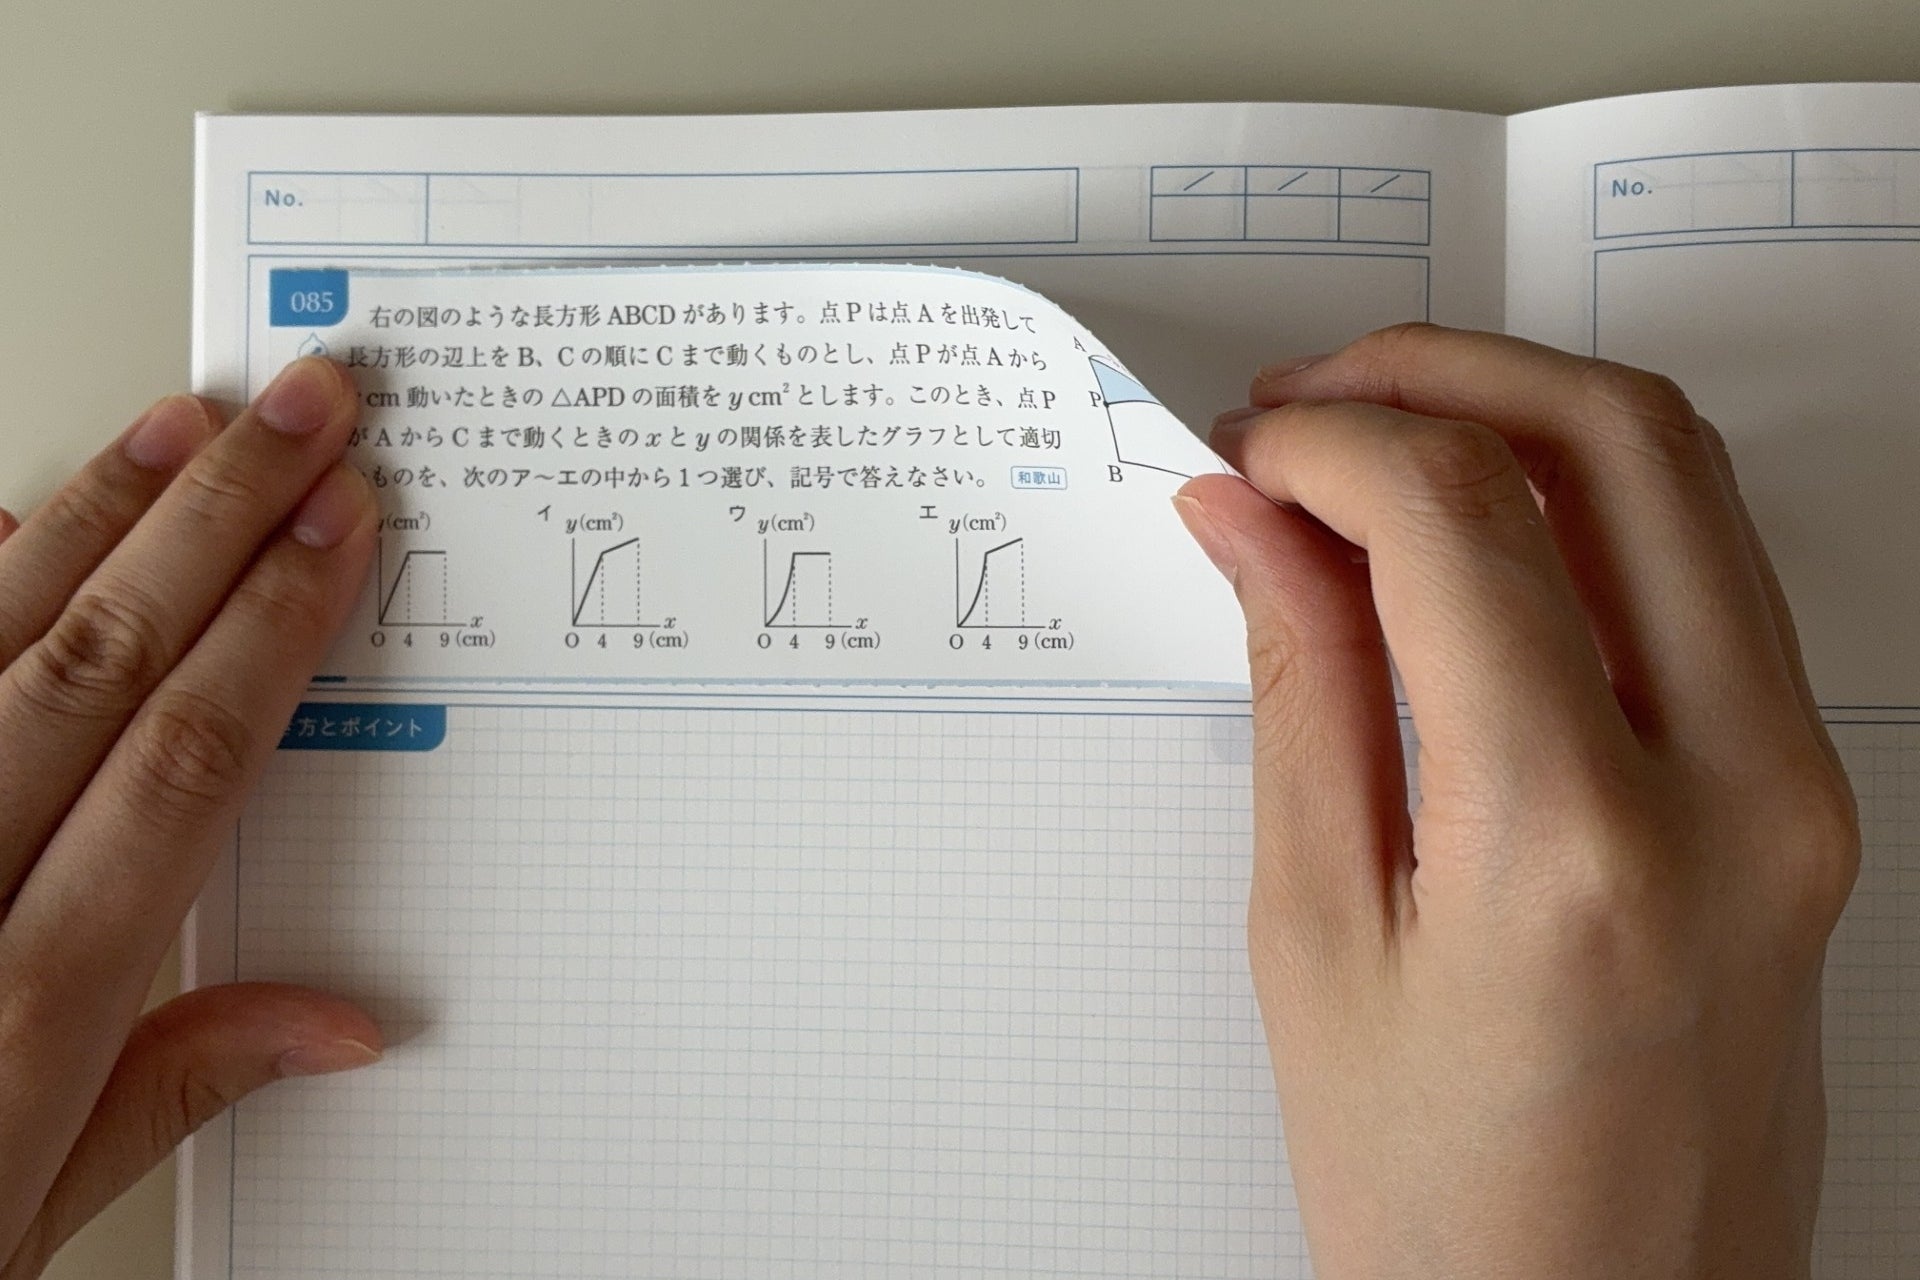 No.
No.
085
右の図のような長方形ABCDがあります。点Pは点Aを出発して
長方形の辺上をB、Cの順にCまで動くものとし、点Pが点Aから
cm動いたときの△APDの面積をy cm²とします。このとき、点P
がAからCまで動くときのxとyの関係を表したグラフとして適切
ものを、次のア〜エの中から1つ選び、記号で答えなさい。 和歌山
A
P
B
y(cm²) イ y(cm²) ウ y(cm²) エ y(cm²)
x x x x
O 4 9 (cm) O 4 9 (cm) O 4 9 (cm) O 4 9 (cm)
方とポイント